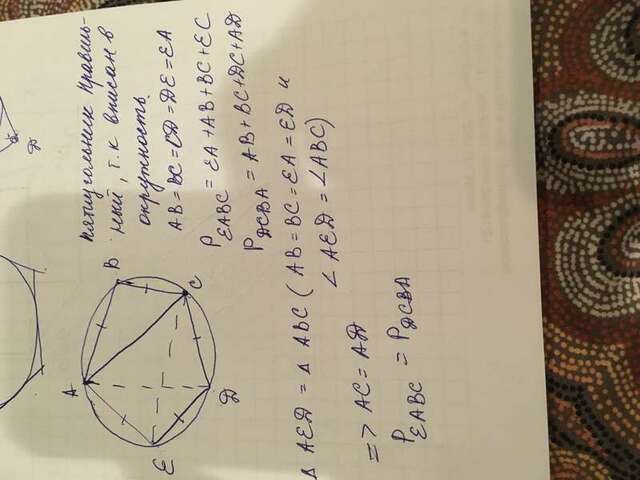 Пятиугольник правиль-
ный, т.к вписан в
окружность.
AB=BC=CD=DE=EA
P EABC = EA+AB+BC+EC
P DCBA = AB+BC+DC+AD
Δ AED = Δ ABC (AB=BC=EA=ED и
∠AED = ∠ABC)
=> AC=AD
P EABC = P DCBA
A
B
C
D
E
D